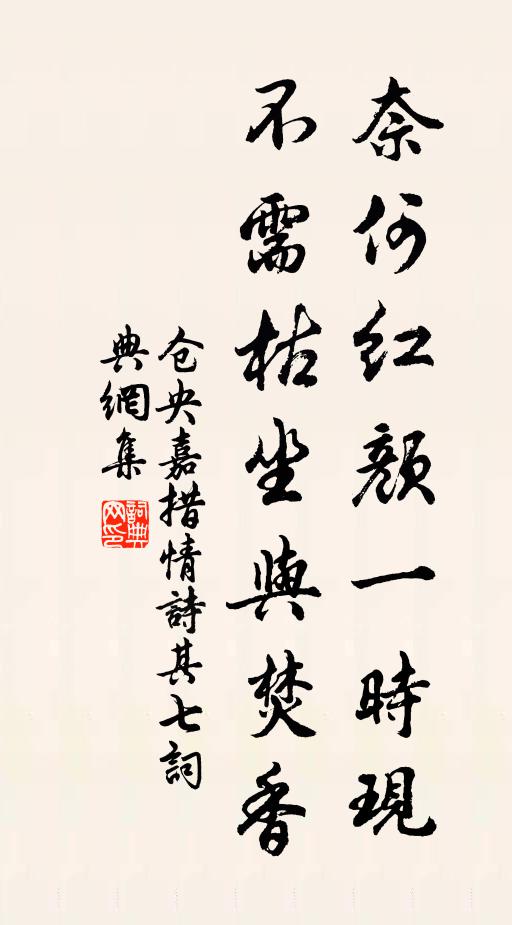 奈何红顔一時現
不需枯坐與焚香
仓央嘉措情詩其七詞
典網集
詞典
网印